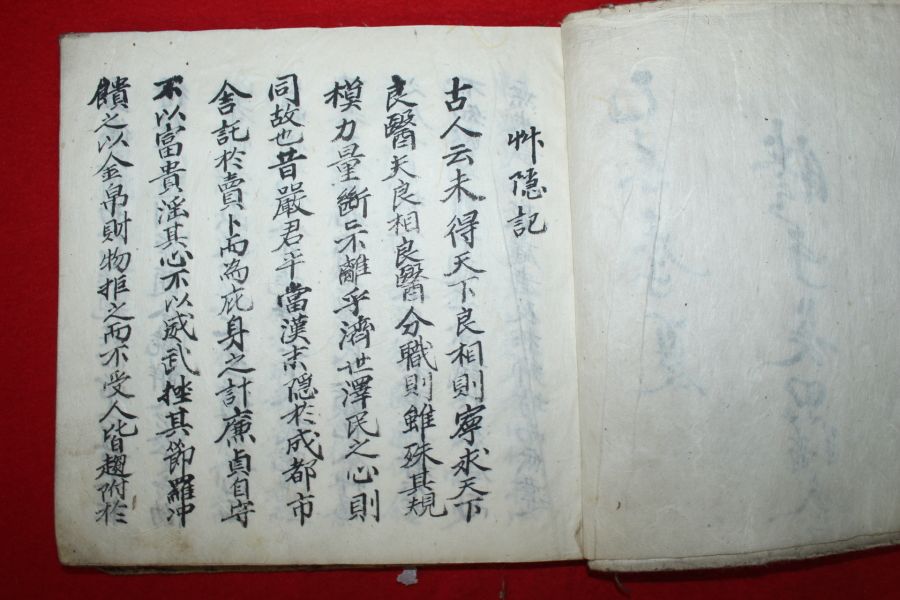 艸隱記
古人云未得天下良相則寧求天下
良醫夫良相良醫分職則雖殊其規
模力量斷不離乎濟世澤民之心則
同故也昔嚴君平當漢末隱於成都市
舍託於賣卜而為庇身之計廉貞自守
不以富貴滛其心不以威武挫其節羅冲
饋之以金帛財物拒之而不受人皆趨附於